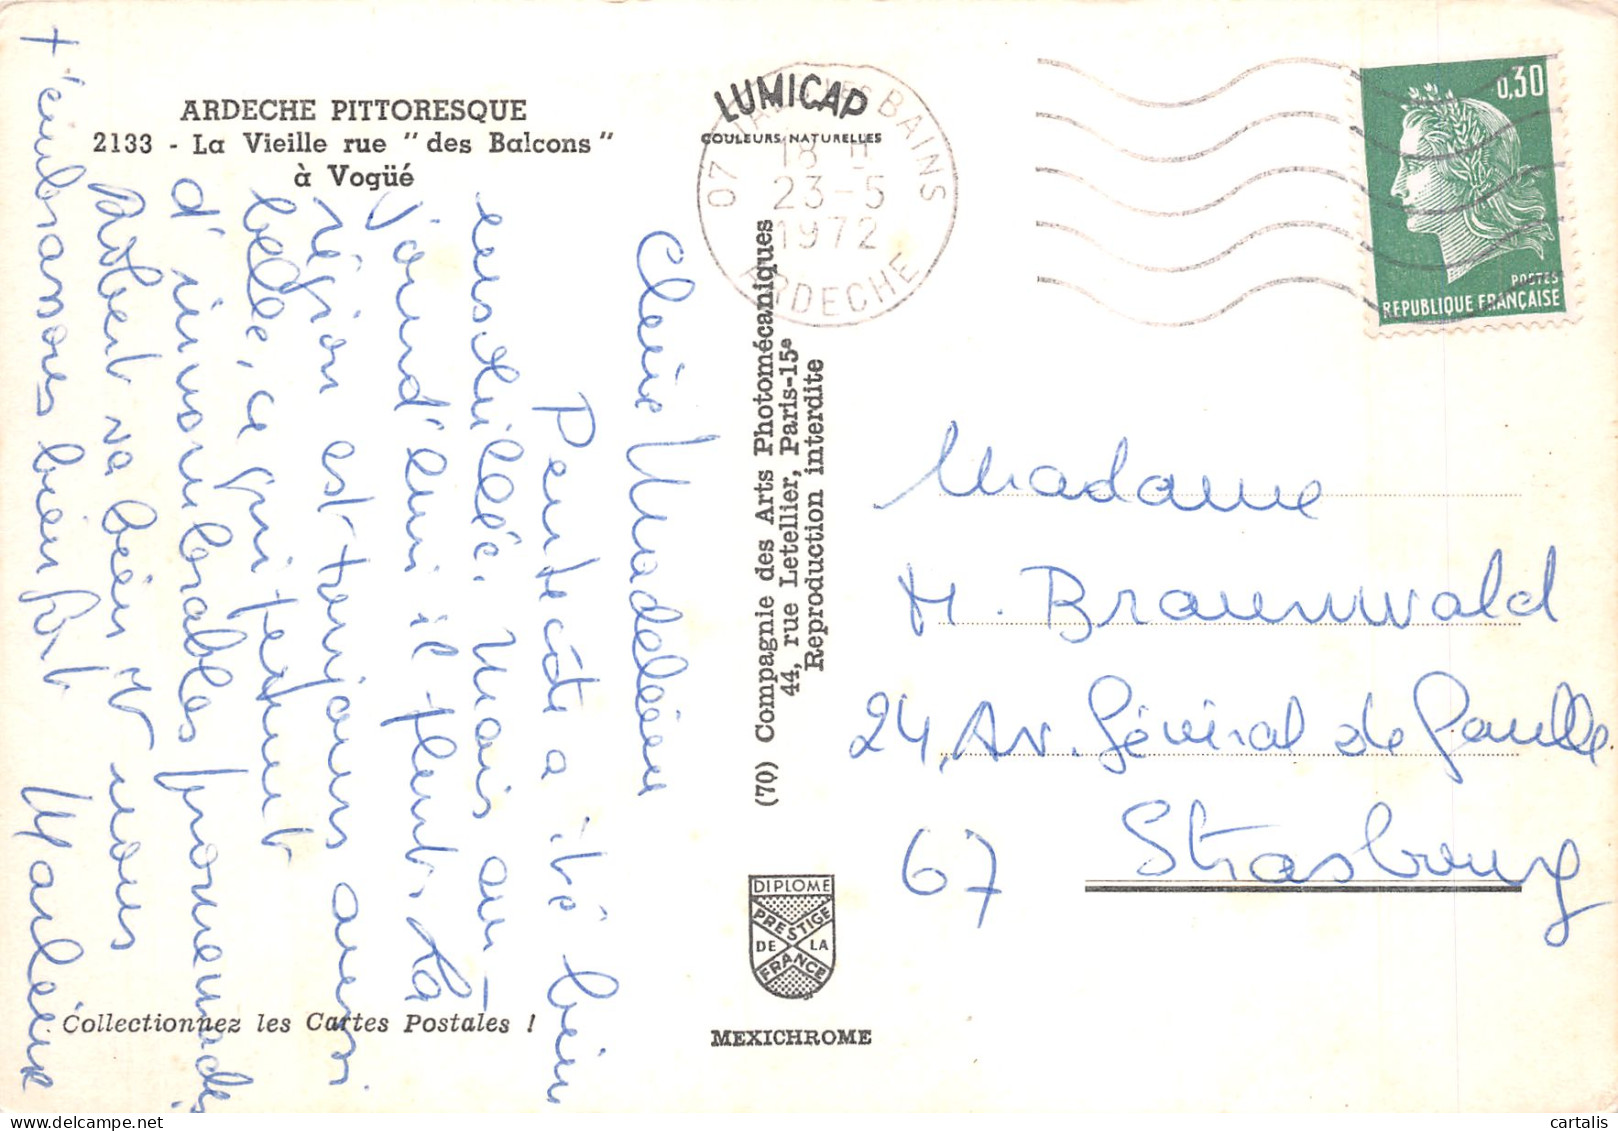 ARDECHE PITTORESQUE
2133 - La Vieille rue " des Balcons "
à Vogüé
Chère Madeleine
Pentecôte a été bien
ensoleillée. Mais au-
jourd'hui il pleut. La
région est toujours aussi
belle, ce qui permet
d'innombrables promenades
Robert va bien et nous
t'embrassons bien fort. Marlène
Collectionnez les Cartes Postales !
LUMICAP
COULEURS NATURELLES
07 LES BAINS
18 H
23-5
1972
ARDECHE
(70) Compagnie des Arts Photomécaniques
44, rue Letellier, Paris-15e
Reproduction interdite
DIPLOME
PRESTIGE
DE LA
FRANCE
MEXICHROME
0,30
POSTES
REPUBLIQUE FRANÇAISE
Madame
M. Braunwald
24, Av. Général de Gaulle
Strasbourg
67
cartalis